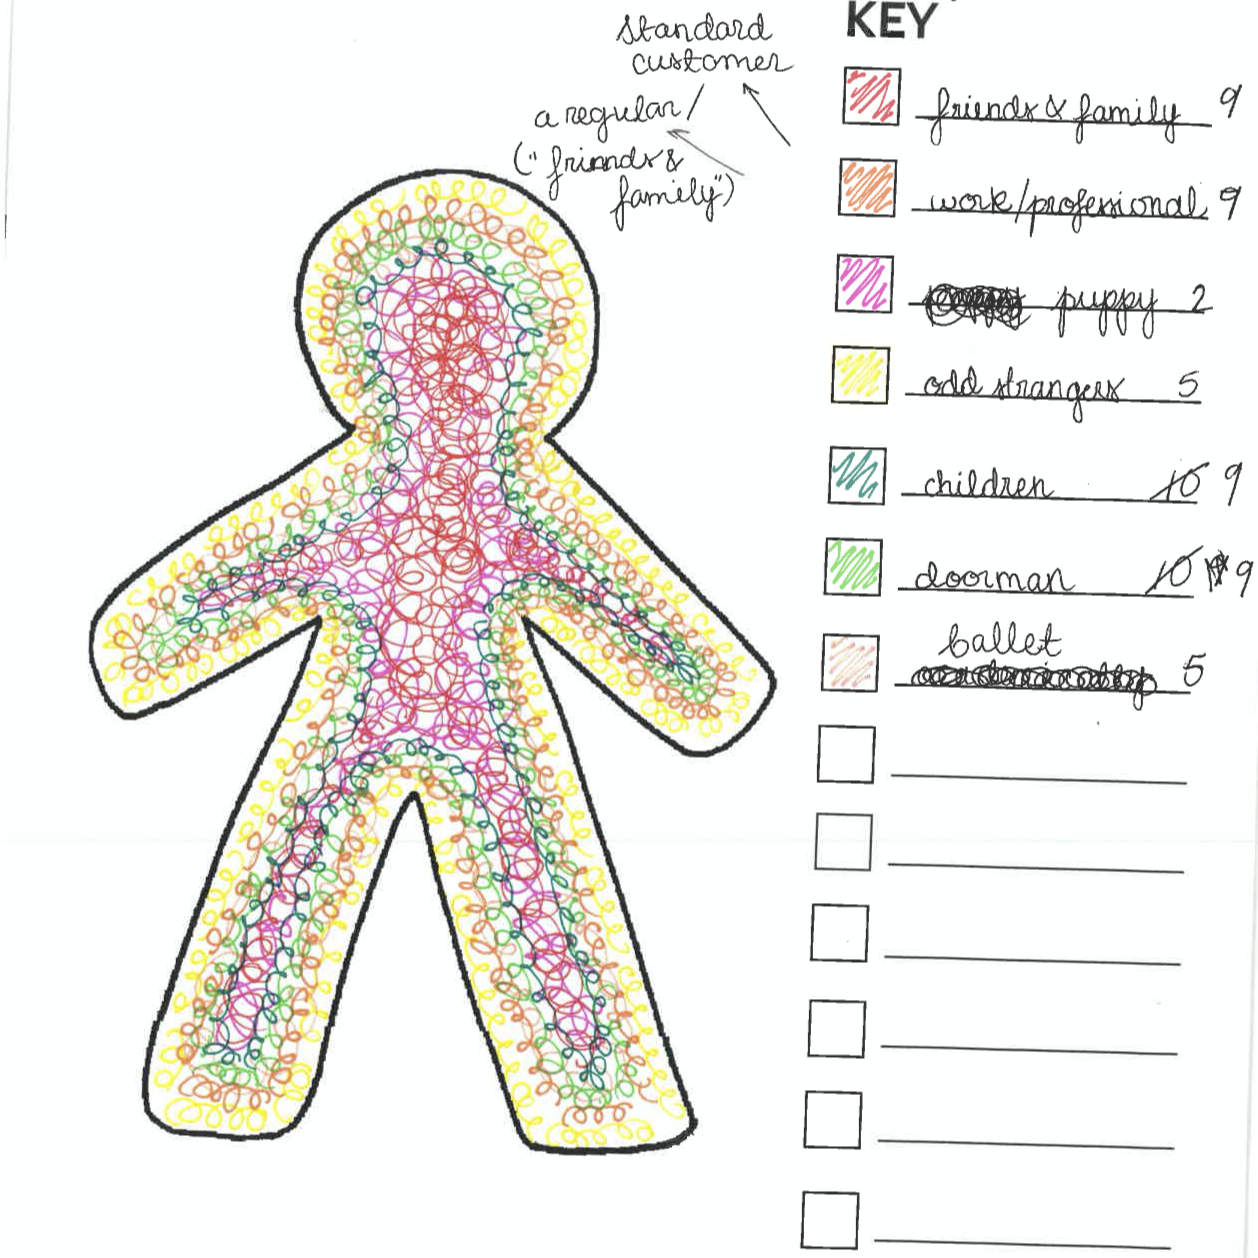 standard
customer
a regular /
("friends &
family")
KEY
friends & family 9
work/professional 9
puppy 2
odd strangers 5
children 10 9
doorman 10 9
ballet
5